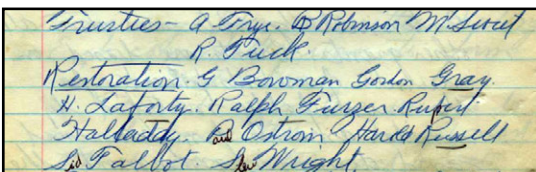 Trusties - A Frye. B Robinson M Sweet
R. Tuck.
Restoration. G Bowman Gordon Gray.
H. Laforty. Ralph Furzer Rupert
Halladdy. Paul Ostrom Harold Russell
Sid Talbot. Stew Wright